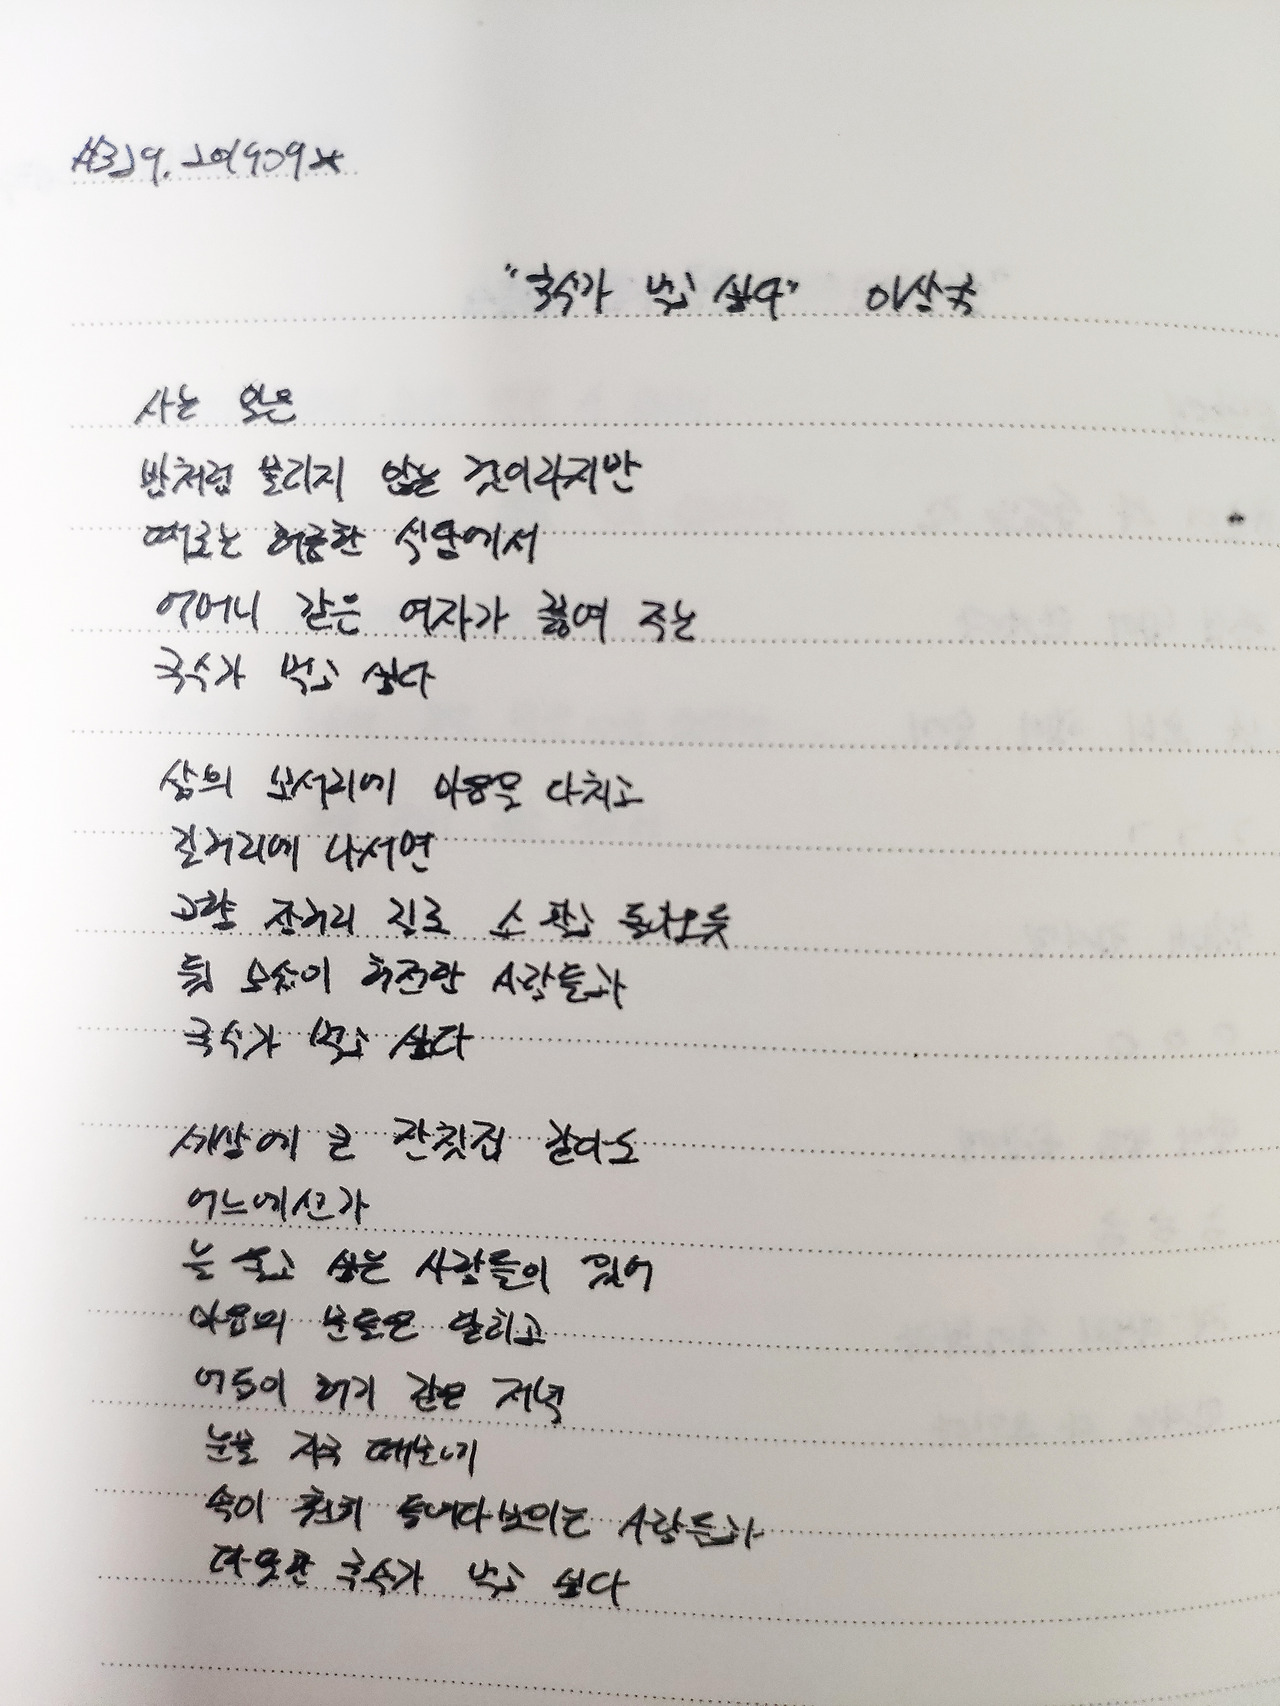 "국수가 먹고 싶다" 이상국
사는 일은
밥처럼 물리지 않는 것이라지만
때로는 허름한 식당에서
어머니 같은 여자가 끓여 주는
국수가 먹고 싶다
삶의 모서리에 마음을 다치고
길거리에 나서면
고향 장거리 길로 소 팔고 돌아오듯
뒷 모습이 허전한 사람들과
국수가 먹고 싶다
세상에 큰 잔칫집 같아도
어느에선가
늘 울고 싶은 사람들이 있어
마음의 문들은 닫히고
어둠이 허기 같은 저녁
눈물 자국 때문에
속이 훤히 들여다보이는 사람들과
따뜻한 국수가 먹고 싶다